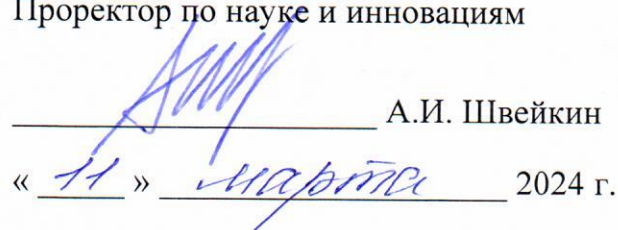 Проректор по науке и инновациям
А.И. Швейкин
« 11 » марта 2024 г.